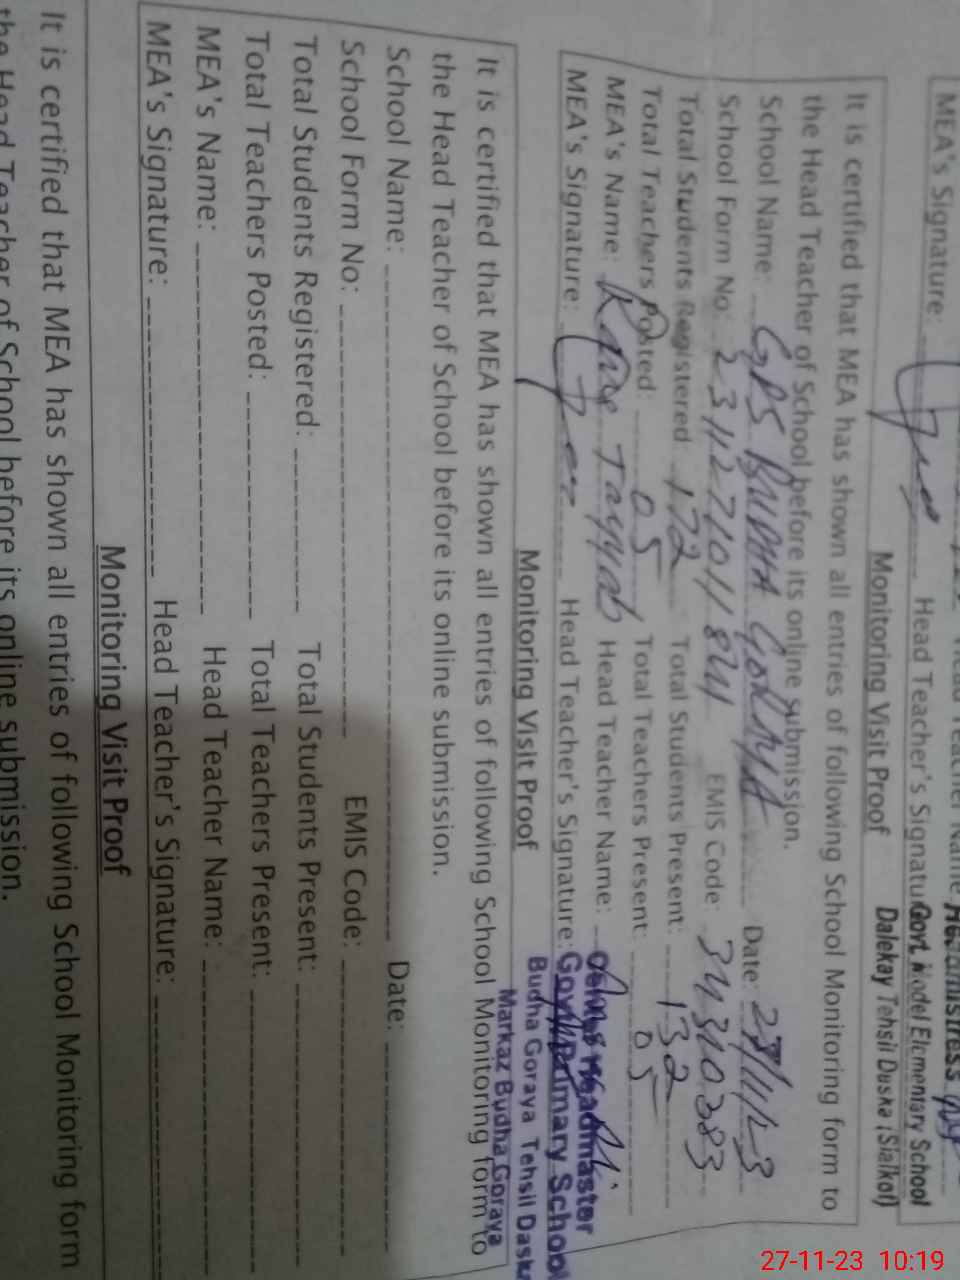 Head Teacher Name: Headmistress
MEA's Signature: Head Teacher's Signature: Govt. Model Elementary School
Dalekay Tehsil Daska (Sialkot)
Monitoring Visit Proof
It is certified that MEA has shown all entries of following School Monitoring form to
the Head Teacher of School before its online submission.
School Name: GPS BUDHA GORAYA Date: 27/11/23
School Form No: EMIS Code: 34310383
Total Students Registered: 172 Total Students Present: 132
Total Teachers Posted: 05 Total Teachers Present: 05
MEA's Name: Tayyab Head Teacher Name: Headmaster
MEA's Signature: Head Teacher's Signature: Govt. Primary School
Budha Goraya Tehsil Daska
Markaz Budha Goraya
Monitoring Visit Proof
It is certified that MEA has shown all entries of following School Monitoring form to
the Head Teacher of School before its online submission.
School Name: Date:
School Form No: EMIS Code:
Total Students Registered: Total Students Present:
Total Teachers Posted: Total Teachers Present:
MEA's Name: Head Teacher Name:
MEA's Signature: Head Teacher's Signature:
Monitoring Visit Proof
It is certified that MEA has shown all entries of following School Monitoring form
the Head Teacher of School before its online submission.
27-11-23 10:19